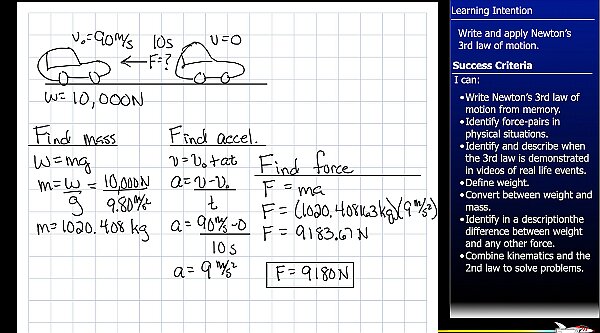 v₀=90m/s 10s v=0
F=?
w=10,000N
Find mass
w=mg
m=w/g = 10,000N/9.80m/s²
m=1020.408 kg
Find accel.
v=v₀+at
a=v-v₀/t
a=90m/s-0/10s
a=9m/s²
Find force
F=ma
F=(1020.408163kg)(9m/s²)
F=9183.67N
F=9180N
Learning Intention
Write and apply Newton's
3rd law of motion.
Success Criteria
I can:
•Write Newton's 3rd law of
motion from memory.
•Identify force-pairs in
physical situations.
•Identify and describe when
the 3rd law is demonstrated
in videos of real life events.
•Define weight.
•Convert between weight and
mass.
•Identify in a descriptionthe
difference between weight
and any other force.
•Combine kinematics and the
2nd law to solve problems.